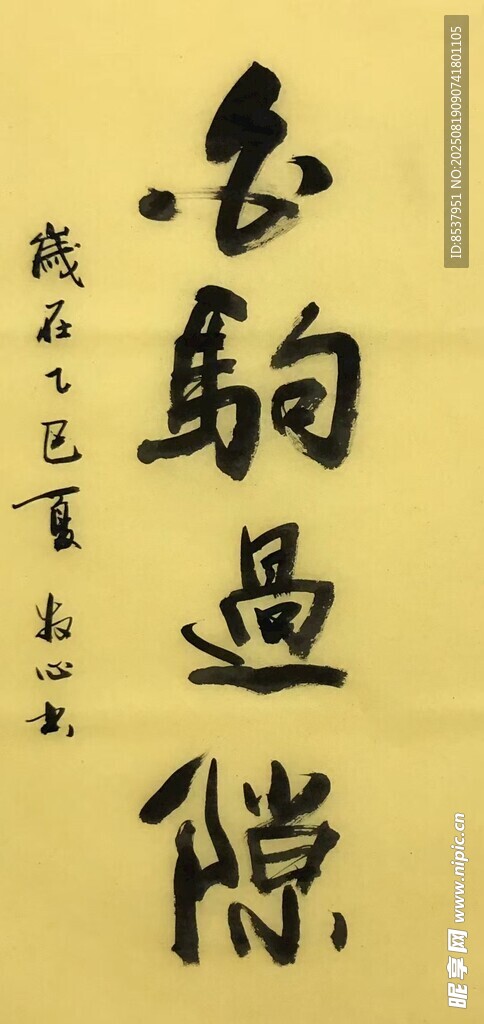 白駒過隙
歲在乙巳夏 牧心书
ID:8537951 NO:20250819090741801105
昵享网 www.nipic.cn